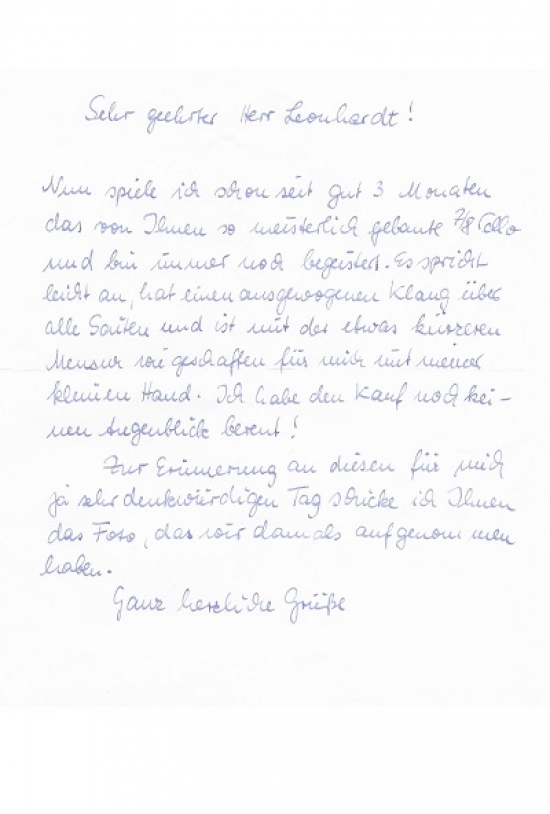 Sehr geehrter Herr Leonhardt!
Nun spiele ich schon seit gut 3 Monaten
das von Ihnen so meisterlich gebaute 7/8 Cello
und bin immer noch begeistert. Es spricht
leicht an, hat einen ausgewogenen Klang über
alle Saiten und ist mit der etwas kürzeren
Mensur wie geschaffen für mich mit meiner
kleinen Hand. Ich habe den Kauf noch kei-
nen Augenblick bereut!
Zur Erinnerung an diesen für mich
ja sehr denkwürdigen Tag schicke ich Ihnen
das Foto, das wir damals aufgenommen
haben.
Ganz herzliche Grüße